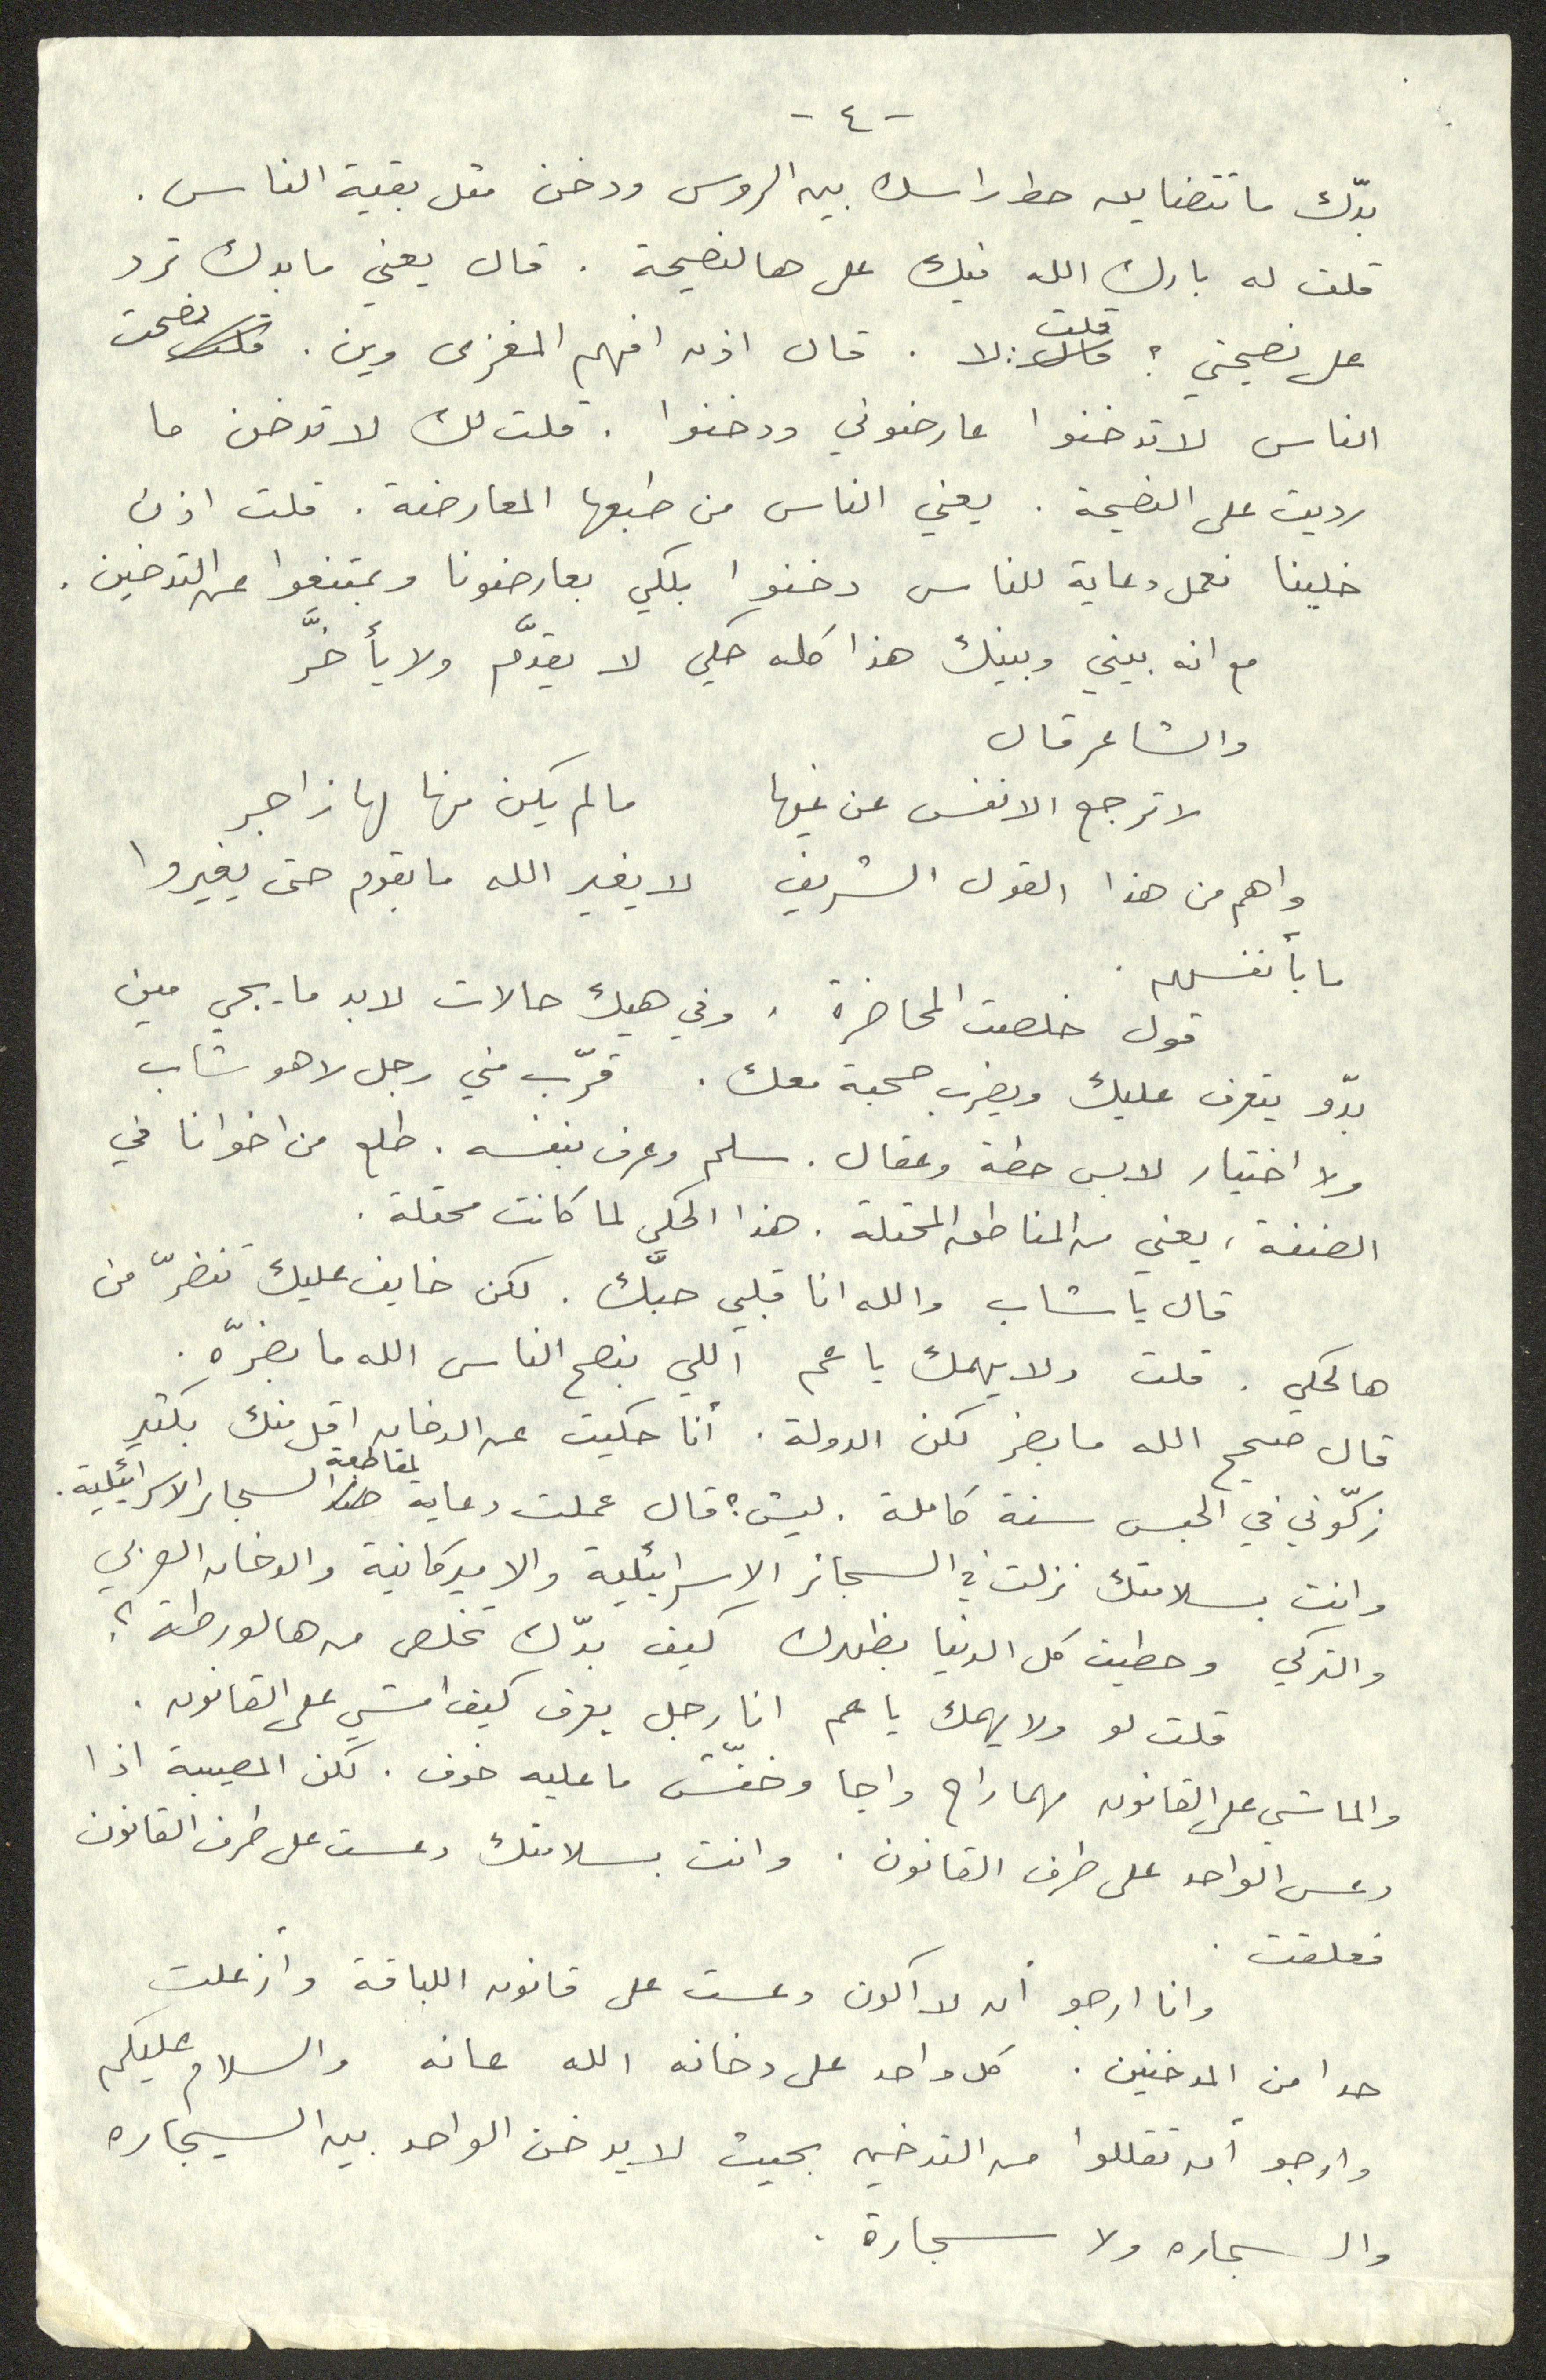 - ٤ -
بدّك ما تتضايق حط راسك بين الروس ودخن متل بقية الناس .
قلت له بارك الله فيك على هالنصيحة . قال يعني ما بدك ترد
على نصيحتي ؟ قلت : لا . قال اذن افهم المغزى وين . نصحت
الناس لا تدخنوا عارضوني ودخنوا . قلت لك لا تدخن ما
رديت على النصيحة . يعني الناس من طبعها المعارضة . قلت اذن
خلينا نعمل دعاية للناس دخنوا بلكي بعارضونا وبمتنعوا عن التدخين .
مع انه بيني وبينك هذا كله حكي لا يقدّم ولا يأخرَّ
والشاعر قال
لا ترجع الانفس عن غيها مالم يكن منها لها زاجر
واهم من هذا القول الشريف لا يغير الله ما بقوم حتى يغيروا
ما بأنفسهم .
قول خلصت المحاضرة ، وفي هيك حالات لابد ما يجي مين
بدّو يتعرف عليك ويضرب صحبة معك . قرّب مني رجل لا هو شاب
ولا اختيار لابس حطة وعقال . سلم وعرف بنفسه . طلع من اخوانا في
الضفة ، يعني من المناطق المحتلة . هذا الحكي لما كانت محتلة .
قال يا شاب والله انا قلبي حبّك . لكن خايف عليك تنضرّ من
هالحكي . قلت ولا يهمك يا عم اللي بنصح الناس الله ما بضرّه .
قال صحيح الله ما بضر لكن الدولة . أنا حكيت عن الدخان اقل منك بكتير
زكّوني في الحبس سنة كاملة . ليش ؟ قال عملت دعاية لمقاطعة السجاير الاسرائيلية .
وانت بسلامتك نزلت في السجائر الاسرائيلية والاميركانية والدخان العربي
والتركي وحطيت كل الدنيا بظهرك كيف بدّك تخلص من هالورطة ؟
قلت لو ولا يهمك يا عم انا رجل يعرف كيف امشي على القانون .
والماشي على القانون مهما راح واجا وخفّش ما عليه خوف . لكن المصيبة اذا
دعس الواحد على طرف القانون . وانت بسلامتك دعست على طرف القانون
فعلقت .
وانا ارجو أن لا اكون دعست على قانون اللباقة وأزعلت
حدا من المدخنين . كل واحد على دخانه الله عانه والسلام عليكم
وارجو أن تقللوا من التدخين بحيث لا يدخن الواحد بين السيجاره
والسجاره ولا سجارة .